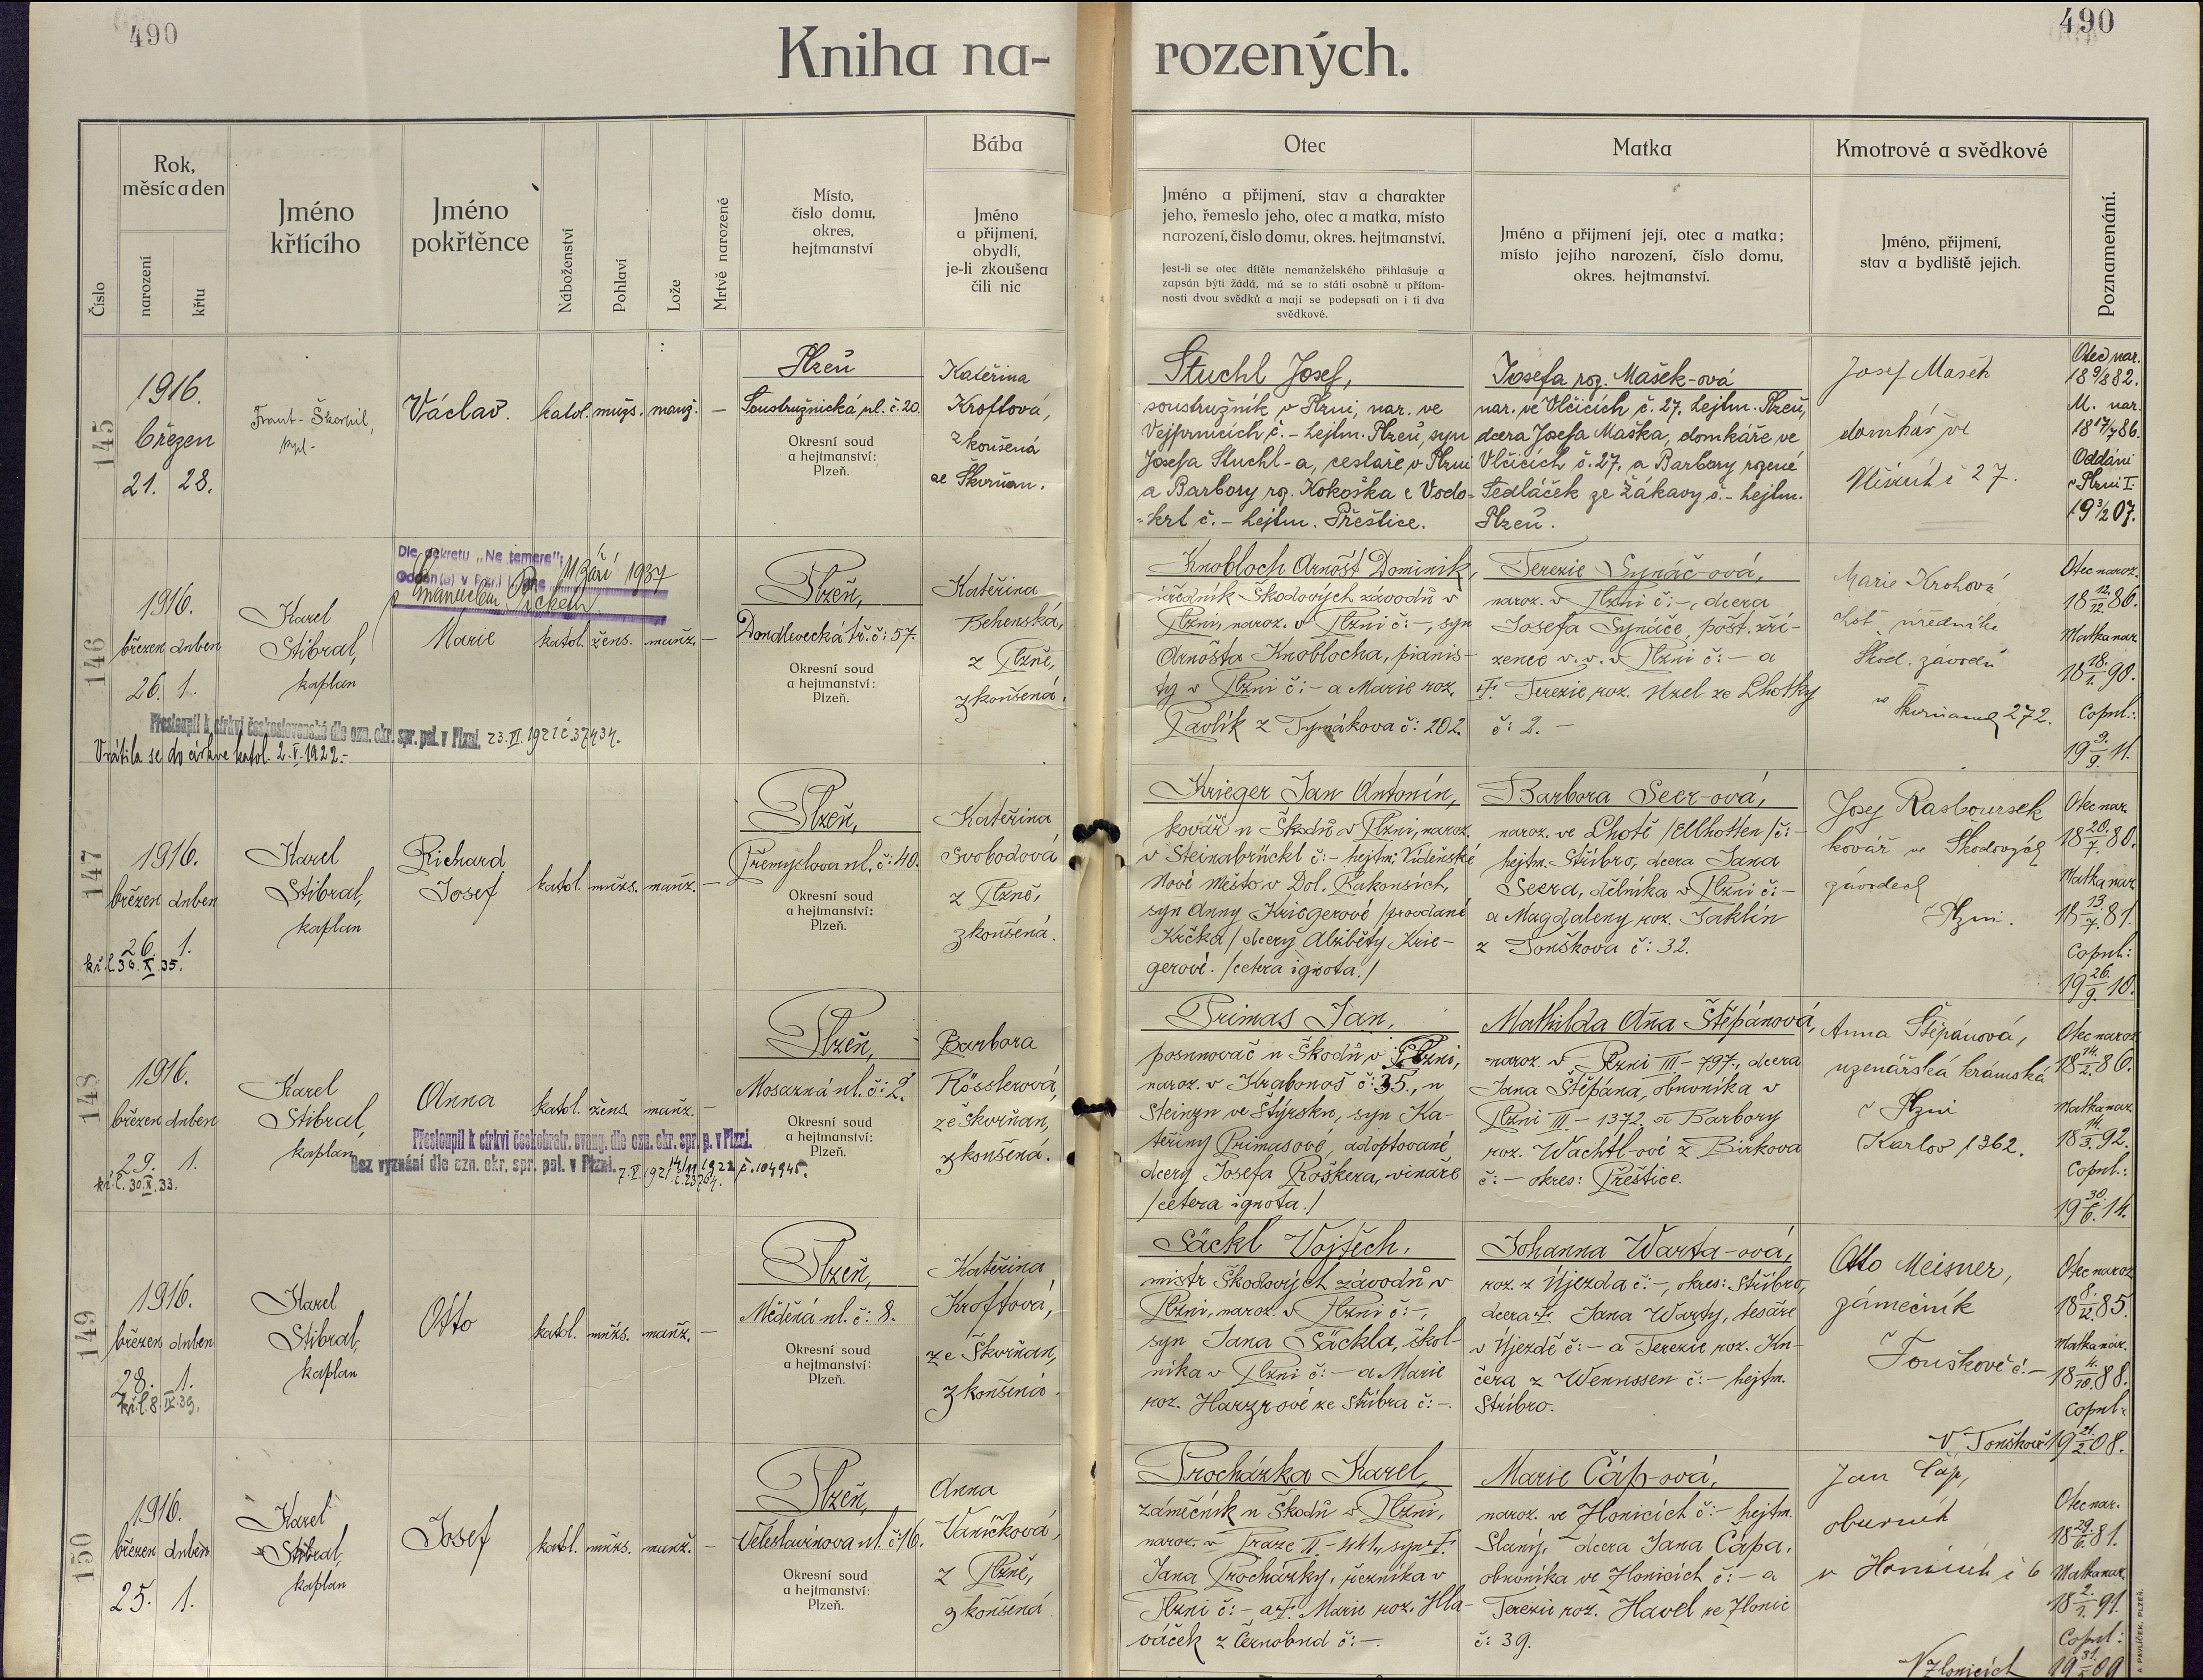 490
490
Kniha na- rozených.
Číslo
Rok,
měsíc a den
narození
křtu
Jméno
křtícího
Jméno
pokřtěnce
Náboženství
Pohlaví
Lože
Mrtvě narozené
Místo,
číslo domu,
okres,
hejtmanství
Bába
Jméno
a přijmení,
obydlí,
je-li zkoušena
čili nic
Otec
Jméno a přijmení, stav a charakter
jeho, řemeslo jeho, otec a matka, místo
narození, číslo domu, okres. hejtmanství.
Jest-li se otec dítěte nemanželského přihlašuje a
zapsán býti žádá, má se to státi osobně u přítom-
nosti dvou svědků a mají se podepsati on i ti dva
svědkové.
Matka
Jméno a přijmení její, otec a matka;
místo jejího narození, číslo domu,
okres. hejtmanství.
Kmotrové a svědkové
Jméno, přijmení,
stav a bydliště jejich.
Poznamenání.
145
1916.
březen
21. 28.
Václav.
katol. mužs. manž. —
Plzeň
Soustružnická ul. č. 20.
Okresní soud
a hejtmanství:
Plzeň.
Kateřina
Kroftová,
zkoušená
ze Škvrňan.
Stuchl Josef,
soustružník v Plzni, nar. ve
Vejprnicích č. – hejtm. Plzeň, syn
Josefa Stuchl-a, cestáře v Plzni
a Barbory roz. Kokoška z Vodo-
krt č. – hejtm. Přeštice.
Josefa roz. Mašek-ová
nar. ve Vlčicích č. 27, hejtm. Plzeň,
dcera Josefa Maška, domkáře ve
Vlčicích č. 27, a Barbory rozené
Sedláček ze Žákavy č. – hejtm.
Plzeň.
Josef Mašek
domkář ve
Vlčicích č 27.
Otec nar.
18 9/8 82.
M. nar.
18 17/7 86.
Oddáni
v Plzni I.
19 3/2 07.
146
Dle dekretu „Ne temere":
11 září 1937
1916.
březen duben
26. 1.
Karel
Stibral,
kaplan
Marie
katol. žens. manž. —
Plzeň,
Dondlevecká tř. č: 57.
Okresní soud
a hejtmanství:
Plzeň.
Kateřina
Behenská,
z Plzně,
zkoušená.
Přestoupil k církvi československé dle ozn. okr. spr. pol. v Plzni. 23. VI. 1921 č. 37434.
Vrátila se do církve katol. 2. V. 1922.-
Knobloch Arnošt Dominik,
úředník Škodových závodů v
Plzni, naroz. v Plzni č: –, syn
Arnošta Knoblocha, pianis-
ty v Plzni č: – a Marie roz.
Pavlík z Tymákova č: 202.
Terezie Synáč-ová,
naroz. v Plzni č: –, dcera
Josefa Synáče, pošt. zří-
zence v. v. v Plzni č: – a
Terezie roz. Uzel ze Lhotky
č: 2. –
Marie Krohová
choť úředníka
Škod. závodů
ve Škvrňanech 272.
Otec naroz.
18 12./12. 86.
Matka nar.
18 18./1. 90.
Copul.:
19 9./9. 11.
147
1916.
březen duben
26. 1.
kř. l. 30. X. 35.
Karel
Stibral,
kaplan
Richard
Josef
katol. mužs. manž. —
Plzeň,
Přemyslova ul. č: 40.
Okresní soud
a hejtmanství:
Plzeň.
Kateřina
Svobodová
z Plzně,
zkoušená.
Krieger Jan Antonín,
kovář u Škodů v Plzni, naroz.
v Steinabrückl č: – hejtm: Vídeňské
Nové Město, v Dol. Rakousích,
syn Anny Kriegerové /provdané
Krčka/ dcery Alžběty Krie-
gerové. /cetera ignota./
Barbora Seer-ová,
naroz. ve Lhotě /Ellhotten/ č: –
hejtm. Stříbro, dcera Jana
Seera, dělníka v Plzni č: –
a Magdaleny roz. Jaklín
z Touškova č: 32.
kovář ve Škodových
závodech
v Plzni.
Otec nar.
18 20./7. 80.
Matka nar.
18 13./7. 81.
Copul:
19 26./9. 10.
148
1916.
březen duben
29. 1.
kř. l. 30. X. 33.
Karel
Stibral,
kaplan
Anna
katol. žens. manž. —
Plzeň,
Mosazná ul. č: 2.
Okresní soud
a hejtmanství:
Plzeň.
Barbora
Rösslerová,
ze Škvrňan,
zkoušená.
Přestoupil k církvi českobratr. evang. dle ozn. okr. spr. p. v Plzni.
Bez vyznání dle ozn. okr. spr. pol. v Plzni.
Primas Jan,
posunovač u Škodů v Plzni,
naroz. v Krabonoš č: 35., u
Steinzu ve Štýrsku, syn Ka-
teřiny Primasové, adoptované
dcery Josefa Roškera, vinaře
/cetera ignota./
Mathilda Aňa Štěpánová,
naroz. v Plzni III – 797., dcera
Jana Štěpána, obuvníka v
Plzni III – 1372. a Barbory
roz. Wachtl-ové z Birkova
č: – okres: Přeštice.
Anna Štěpánová,
uzenářská krámská
v Plzni
Karlov 1362.
Otec naroz.
18 14./2. 86.
Matka nar.
18 14./3. 92.
Copul.:
19 30./6. 14.
149
1916.
březen duben
28. 1.
kř. l. 8. IV. 39.
Karel
Stibral,
kaplan
Otto
katol. mužs. manž. —
Plzeň,
Měděná ul. č: 8.
Okresní soud
a hejtmanství:
Plzeň.
Kateřina
Kroftová,
ze Škvrňan,
zkoušená.
Säckl Vojtěch,
mistr Škodových závodů v
Plzni, naroz. v Plzni č: –,
syn Jana Säckla, škol-
níka v Plzni č: – a Marie
roz. Harzrové ze Stříbra č: –.
Johanna Warta-ová,
roz. z Újezda č: –, okres: Stříbro,
dcera Jana Warty, tesaře
v Újezdě č: – a Terezie roz. Ku-
čera z Wenussen č: – hejtm.
Stříbro.
Otto Meisner,
zámečník
v Touškově č. –
Otec naroz.
18 8./12. 85.
Matka nar.
18 4./10. 88.
Copul:
V Touškově 19 21./2. 08.
150
1916.
březen duben
25. 1.
Karel
Stibral,
kaplan
Josef
katol. mužs. manž. —
Plzeň,
Veleslavínova ul. č: 16.
Okresní soud
a hejtmanství:
Plzeň.
Anna
Vaníčková,
z Plzně,
zkoušená.
Procházka Karel,
zámečník u Škodů v Plzni,
naroz. v Praze II – 441., syn
Jana Procházky, řezníka v
Plzni č: – a Marie roz. Hla-
váček z Černobud č: –.
Marie Čáp-ová,
naroz. ve Hlonicích č: – hejtm.
Slaný, dcera Jana Čápa,
obuvníka ve Zlonicích č: – a
Terezie roz. Havel ze Zlonic
č: 39.
Jan Čáp,
obuvník
Otec nar.
18 29./6. 81.
Matka nar.
18 2./1. 91.
Copul:
V Zlonicích
PAVLÍČEK, PLZEŇ.